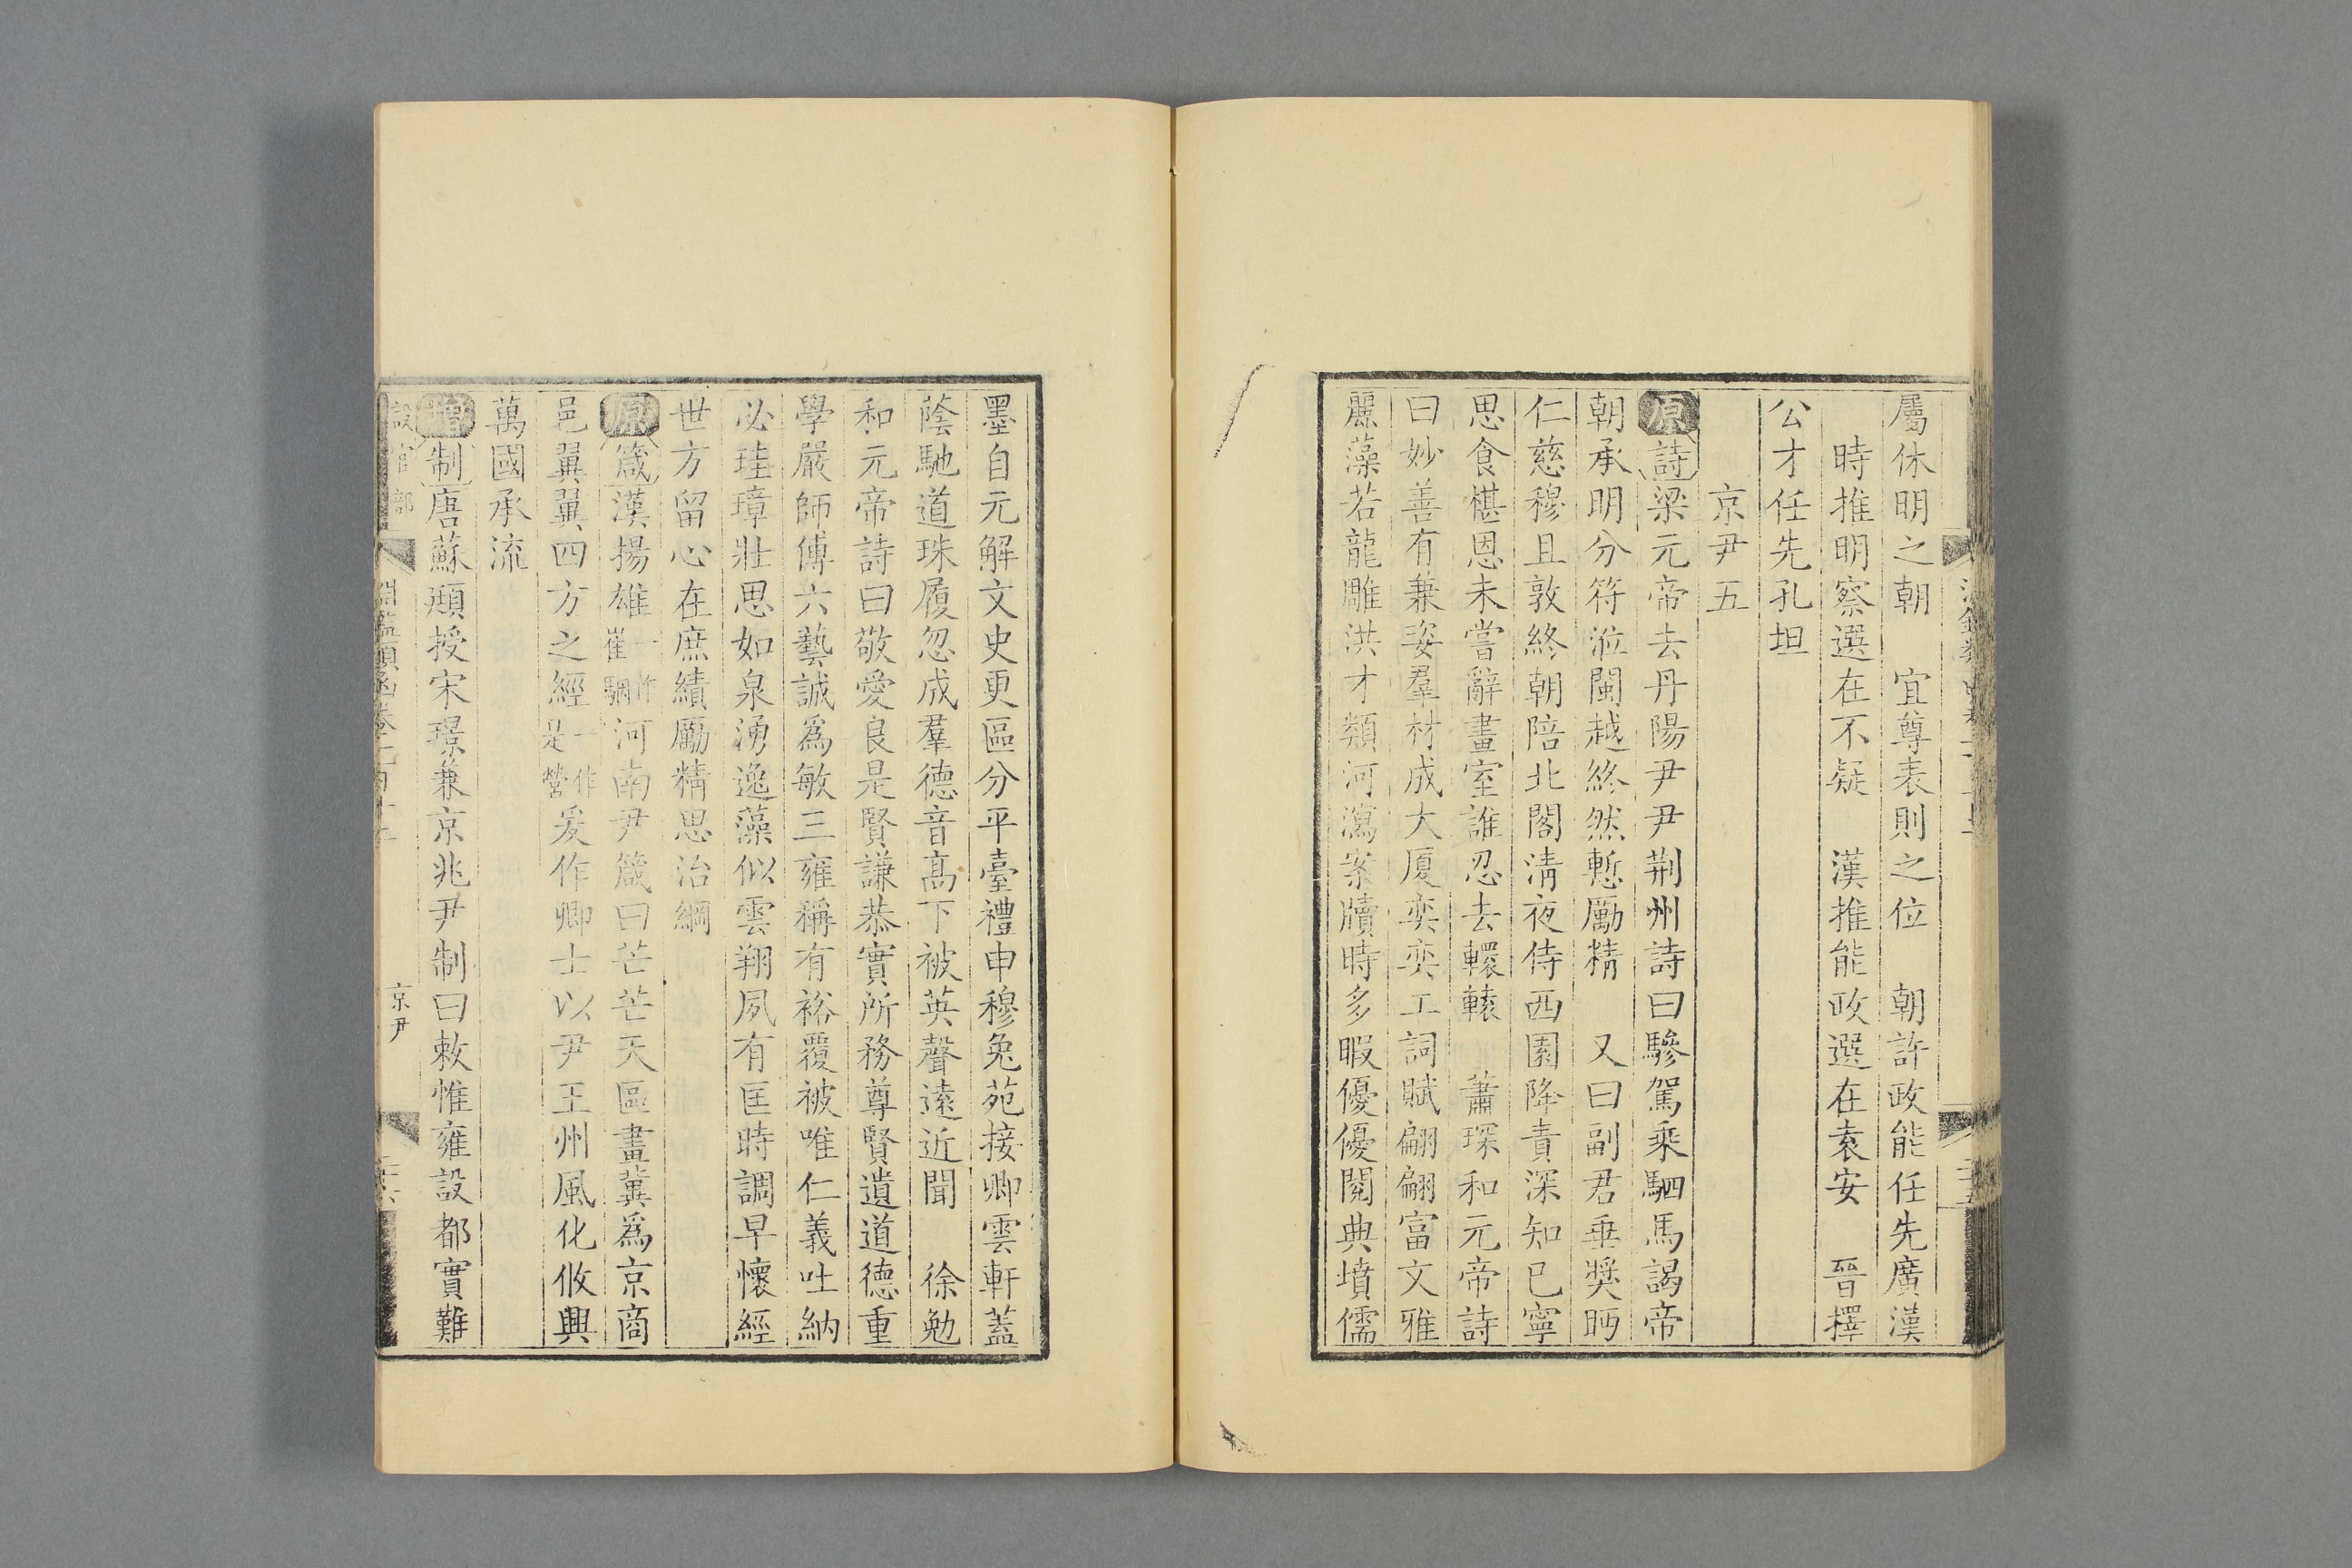 屬休明之朝　宜尊表則之位　朝許政能任先廣漢
時推明察選在不疑　漢推能政選在袁安　晉擇
公才任先孔坦
京尹五
原詩梁元帝去丹陽尹尹荆州詩曰驂駕乘駟馬謁帝
朝承明分符涖閩越終然慙勵精　又曰副君垂奬眄
仁慈穆且敦終朝陪北閣清夜侍西園降責深知已寧
思食椹恩未嘗辭畫室誰忍去轘轅　蕭琛和元帝詩
曰妙善有兼姿羣材成大厦奕奕工詞賦翩翩富文雅
麗藻若龍雕洪才類河瀉案牘時多暇優優閱典墳儒
墨自元解文史更區分平臺禮申穆兔苑接卿雲軒蓋
蔭馳道珠履忽成羣德音高下被英聲遠近聞　徐勉
和元帝詩曰敬愛良是賢謙恭實所務尊賢遺道德重
學嚴師傅六藝誠爲敏三雍稱有裕覆被唯仁義吐納
必珪璋壯思如泉湧逸藻似雲翔夙有匡時調早懷經
世方留心在庶績勵精思治綱
原箴漢揚雄一作崔駰河南尹箴曰芒芒天區畫冀爲京商
邑翼翼四方之經一作是營爰作卿士以尹王州風化攸興
萬國承流
增制唐蘇頲授宋璟兼京兆尹制曰敕惟雍設都實難
設官部　淵鑑類函卷一百十　京尹